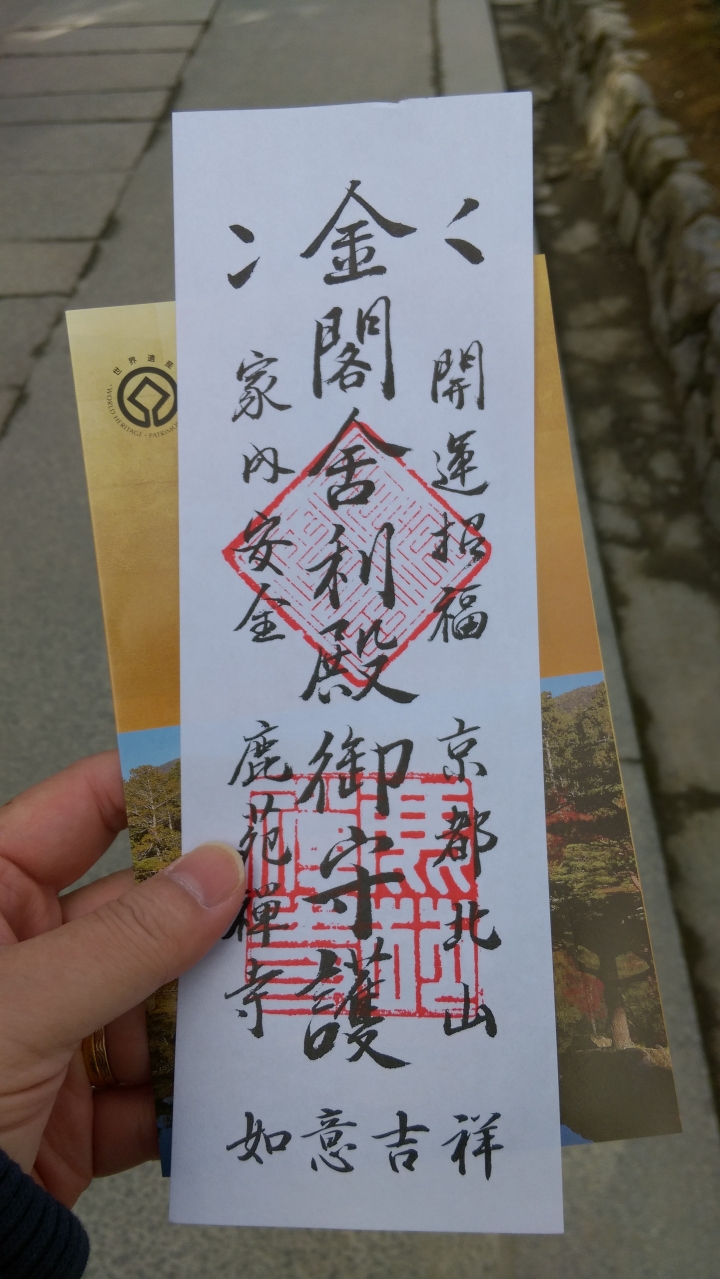 開運招福
京都北山
金閣舎利殿御守護
家内安全
鹿苑禪寺
如意吉祥
世界遺産
WORLD HERITAGE